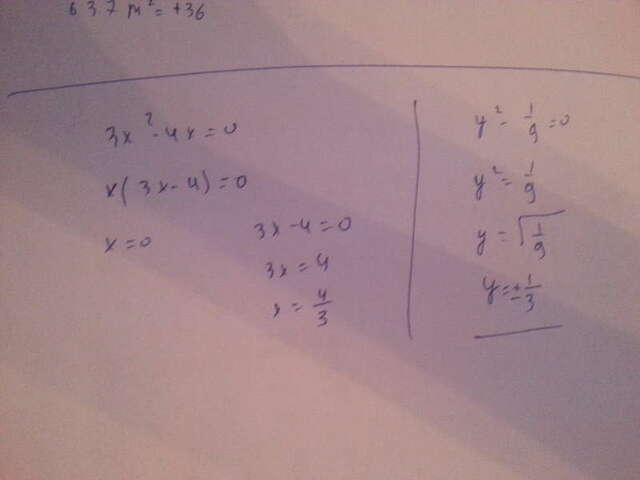 6 3.7 m² = +36
3x² - 4x = 0
x(3x - 4) = 0
x = 0
3x - 4 = 0
3x = 4
x = 4/3
y² - 1/9 = 0
y² = 1/9
y = √1/9
y = ± 1/3